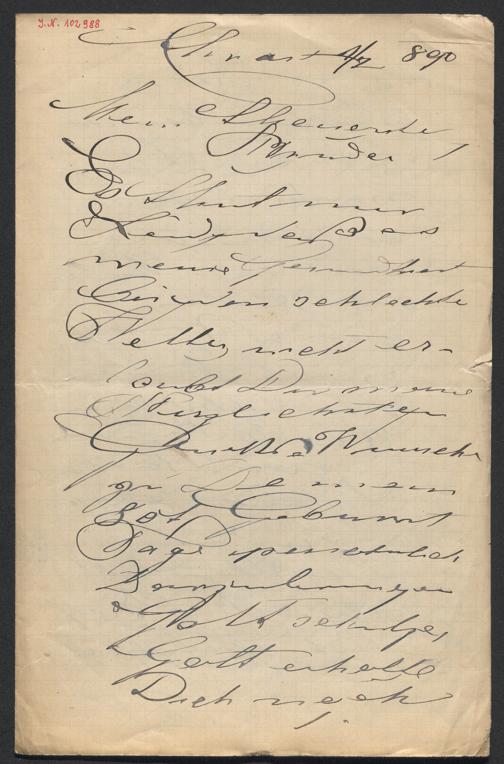 J.N. 102988
4/2 890
Mein Theuerster
Bruder!
Es thut mir
Leid, das es
meine Gesundheit
bei den schlechten
Wetter nicht er-
laubt Dir meine
Herzlichsten
Wünsche
zu Deinem
Geburts
Tage persönlich
Gott
Gott erhalte
Dich noch